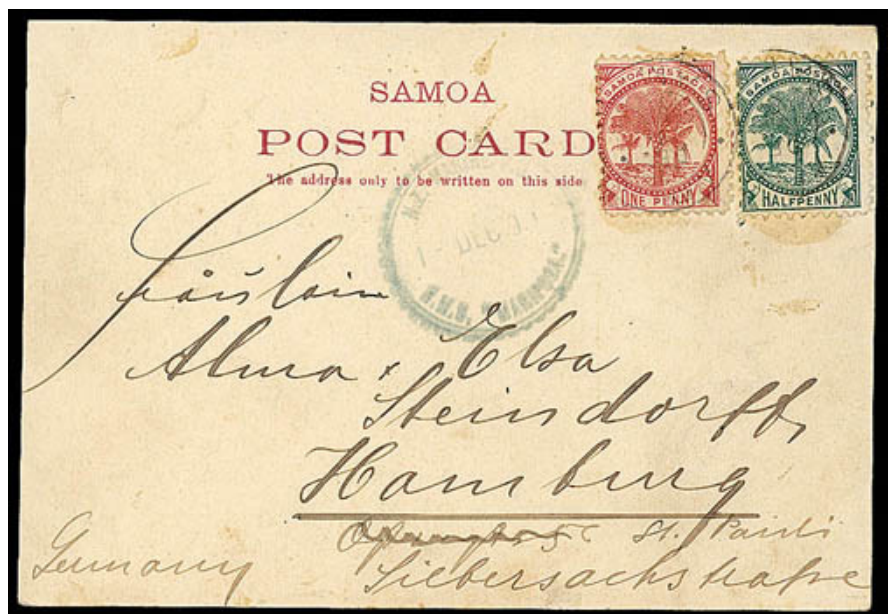 SAMOA
POST CARD
The address only to be written on this side
SAMOA POSTAGE
ONE PENNY
SAMOA POSTAGE
HALFPENNY
N.Z.
1 - DEC
R.M.S. "MARIPOSA"
Fräulein
Alma, Elsa
Steindorff,
Hamburg
St. Pauli
Germany
Silbersackstraße